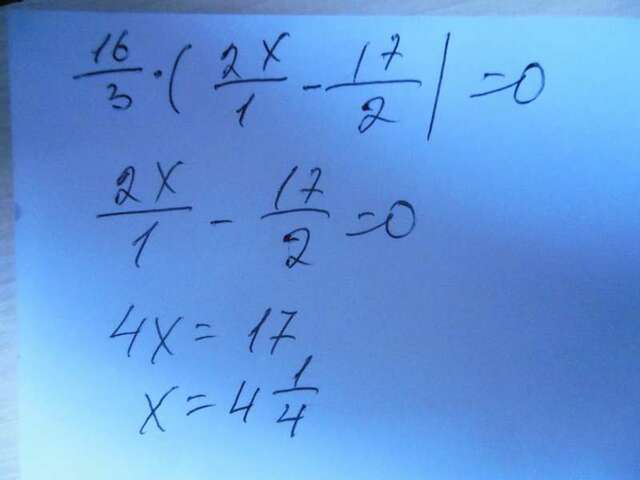 16/3 · ( 2x/1 - 17/2 | = 0
2x/1 - 17/2 = 0
4x = 17
x = 4 1/4